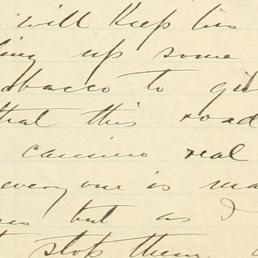 will keep his
up some
tobacco to
that this road
camino real
everyone is
but as I
stop them